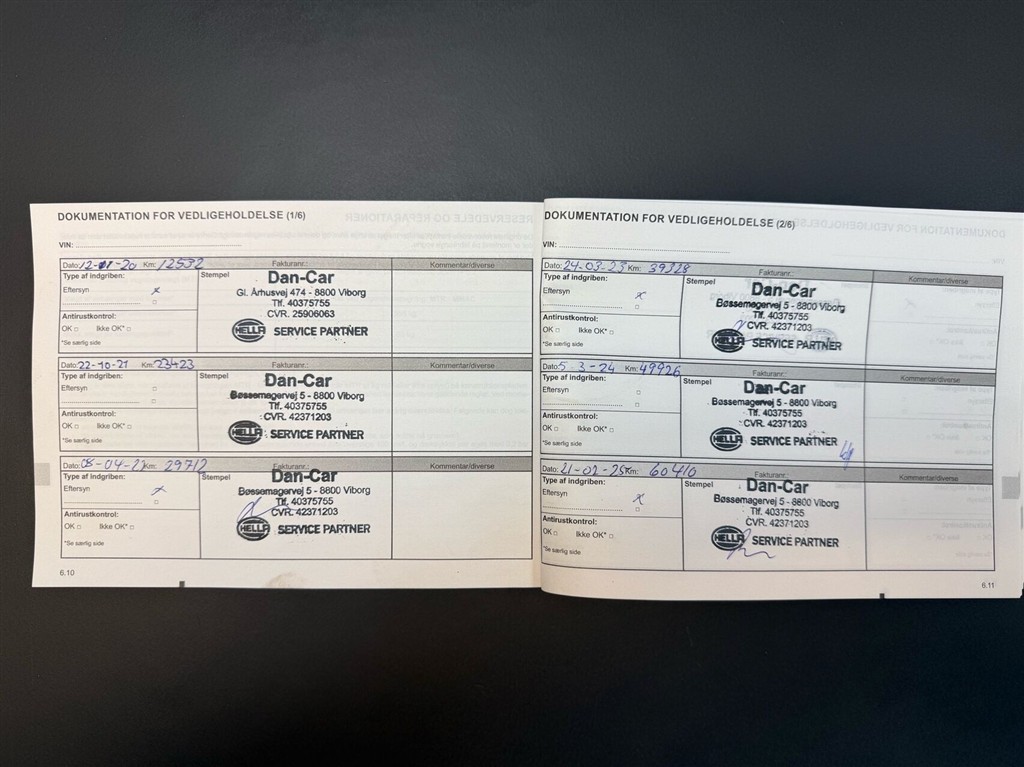 DOKUMENTATION FOR VEDLIGEHOLDELSE (1/6)
VIN:
Dato: 12-01-20 Km: 12532 Fakturanr.: Kommentar/diverse
Type af indgriben: Stempel
Dan-Car
Eftersyn x
Gl. Århusvej 474 - 8800 Viborg
Tlf. 40375755
CVR. 25906063
Antirustkontrol:
OK Ikke OK*
HELLA SERVICE PARTNER
*Se særlig side
Dato: 22-10-21 Km: 23423 Fakturanr.: Kommentar/diverse
Type af indgriben: Stempel
Dan-Car
Eftersyn
Bøssemagervej 5 - 8800 Viborg
Tlf. 40375755
CVR. 42371203
Antirustkontrol:
OK Ikke OK*
HELLA SERVICE PARTNER
*Se særlig side
Dato: 08-04-22 Km: 29712 Fakturanr.: Kommentar/diverse
Type af indgriben: Stempel
Dan-Car
Eftersyn x
Bøssemagervej 5 - 8800 Viborg
Tlf. 40375755
CVR. 42371203
Antirustkontrol:
OK Ikke OK*
HELLA SERVICE PARTNER
*Se særlig side
6.10
DOKUMENTATION FOR VEDLIGEHOLDELSE (2/6)
VIN:
Dato: 24-03-23 Km: 39328 Fakturanr.: Kommentar/diverse
Type af indgriben: Stempel
Dan-Car
Eftersyn x
Bøssemagervej 5 - 8800 Viborg
Tlf. 40375755
CVR. 42371203
Antirustkontrol:
OK Ikke OK*
HELLA SERVICE PARTNER
*Se særlig side
Dato: 5-3-24 Km: 49926 Fakturanr.: Kommentar/diverse
Type af indgriben: Stempel
Dan-Car
Eftersyn
Bøssemagervej 5 - 8800 Viborg
Tlf. 40375755
CVR. 42371203
Antirustkontrol:
OK Ikke OK*
HELLA SERVICE PARTNER
*Se særlig side
Dato: 21-02-25 Km: 60410 Fakturanr.: Kommentar/diverse
Type af indgriben: Stempel
Dan-Car
Eftersyn x
Bøssemagervej 5 - 8800 Viborg
Tlf. 40375755
CVR. 42371203
Antirustkontrol:
OK Ikke OK*
HELLA SERVICE PARTNER
*Se særlig side
6.11